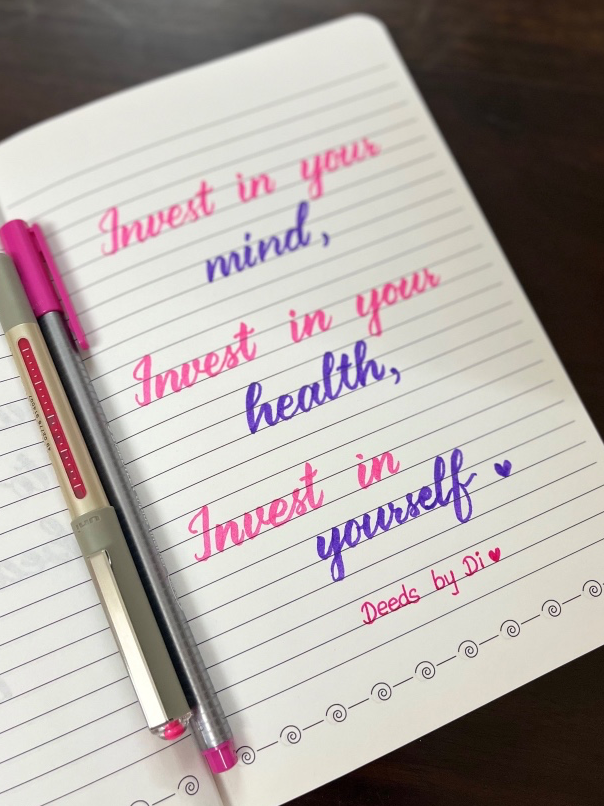 Invest in your
mind,
Invest in your
health,
Invest in
yourself ♥
Deeds by Di ♥